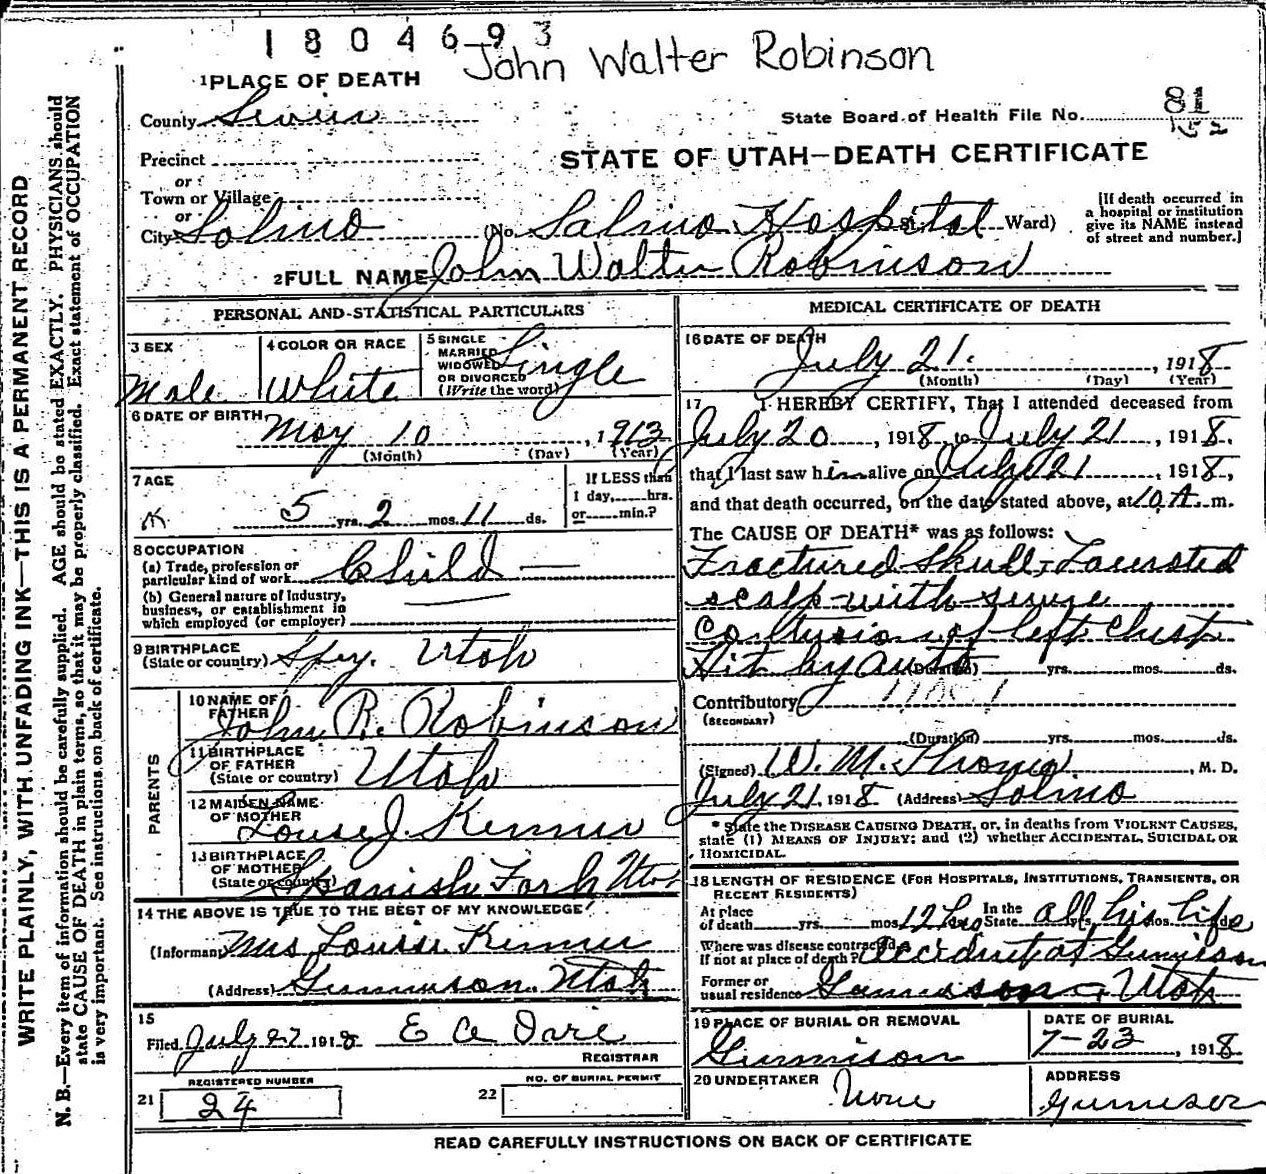 1804693
John Walter Robinson
1 PLACE OF DEATH
County Sevier
State Board of Health File No. 81
152
Precinct
STATE OF UTAH—DEATH CERTIFICATE
or
Town or Village
or
City Salina (No. Salina Hospital St. Ward)
[If death occurred in a hospital or institution give its NAME instead of street and number.]
2 FULL NAME John Walter Robinson
PERSONAL AND STATISTICAL PARTICULARS
3 SEX
Male
4 COLOR OR RACE
White
5 SINGLE MARRIED WIDOWED OR DIVORCED (Write the word)
Single
6 DATE OF BIRTH
May 10, 1913
(Month) (Day) (Year)
7 AGE
5 yrs. 2 mos. 11 ds.
If LESS than 1 day, hrs. or min.?
8 OCCUPATION
(a) Trade, profession or particular kind of work Child —
(b) General nature of Industry, business, or establishment in which employed (or employer)
9 BIRTHPLACE
(State or country) Utah
PARENTS
10 NAME OF FATHER
John R. Robinson
11 BIRTHPLACE OF FATHER
(State or country) Utah
12 MAIDEN NAME OF MOTHER
Louise J. Kenner
13 BIRTHPLACE OF MOTHER
(State or country) Spanish Fork Utah
14 THE ABOVE IS TRUE TO THE BEST OF MY KNOWLEDGE
(Informant) Mrs Louise Kenner
(Address) Gunnison Utah
15
Filed July 27 1918 E
REGISTRAR
REGISTERED NUMBER
21 24
NO. OF BURIAL PERMIT
22
MEDICAL CERTIFICATE OF DEATH
16 DATE OF DEATH
July 21. , 1918
(Month) (Day) (Year)
17 I HEREBY CERTIFY, That I attended deceased from
July 20, 1918, to July 21, 1918.
that I last saw him alive on July 21, 1918,
and that death occurred, on the date stated above, at 10 A. m.
The CAUSE OF DEATH* was as follows:
Fractured skull, Lacerated
scalp with
left chest
Hit by auto (Duration) yrs. mos. ds.
Contributory
(SECONDARY)
(Duration) yrs. mos. ds.
(Signed) W. M., M. D.
July 21, 1918 (Address) Salina
* State the DISEASE CAUSING DEATH, or, in deaths from VIOLENT CAUSES, state (1) MEANS OF INJURY; and (2) whether ACCIDENTAL, SUICIDAL OR HOMICIDAL.
18 LENGTH OF RESIDENCE (FOR HOSPITALS, INSTITUTIONS, TRANSIENTS, OR RECENT RESIDENTS)
At place of death yrs. mos. 12 hrs In the State all his life
Where was disease contracted if not at place of death? Accident at Gunnison
Former or usual residence Gunnison, Utah
19 PLACE OF BURIAL OR REMOVAL
Gunnison
DATE OF BURIAL
7-23, 1918
20 UNDERTAKER
None
ADDRESS
Gunnison
READ CAREFULLY INSTRUCTIONS ON BACK OF CERTIFICATE
WRITE PLAINLY, WITH UNFADING INK—THIS IS A PERMANENT RECORD
N. B.—Every item of information should be carefully supplied. AGE should be stated EXACTLY. PHYSICIANS should
state CAUSE OF DEATH in plain terms, so that it may be properly classified. Exact statement of OCCUPATION
is very important. See instructions on back of certificate.